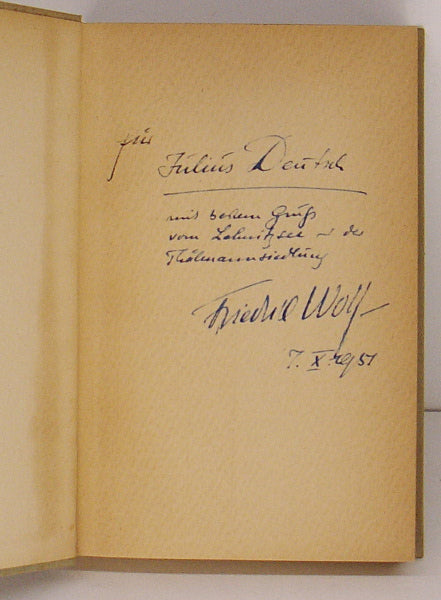 für
Julius Deutsch
mit bestem Gruß
vom Lehnitzsee u der
Thälmannsiedlung
Friedrich Wolf
7. X. 1951